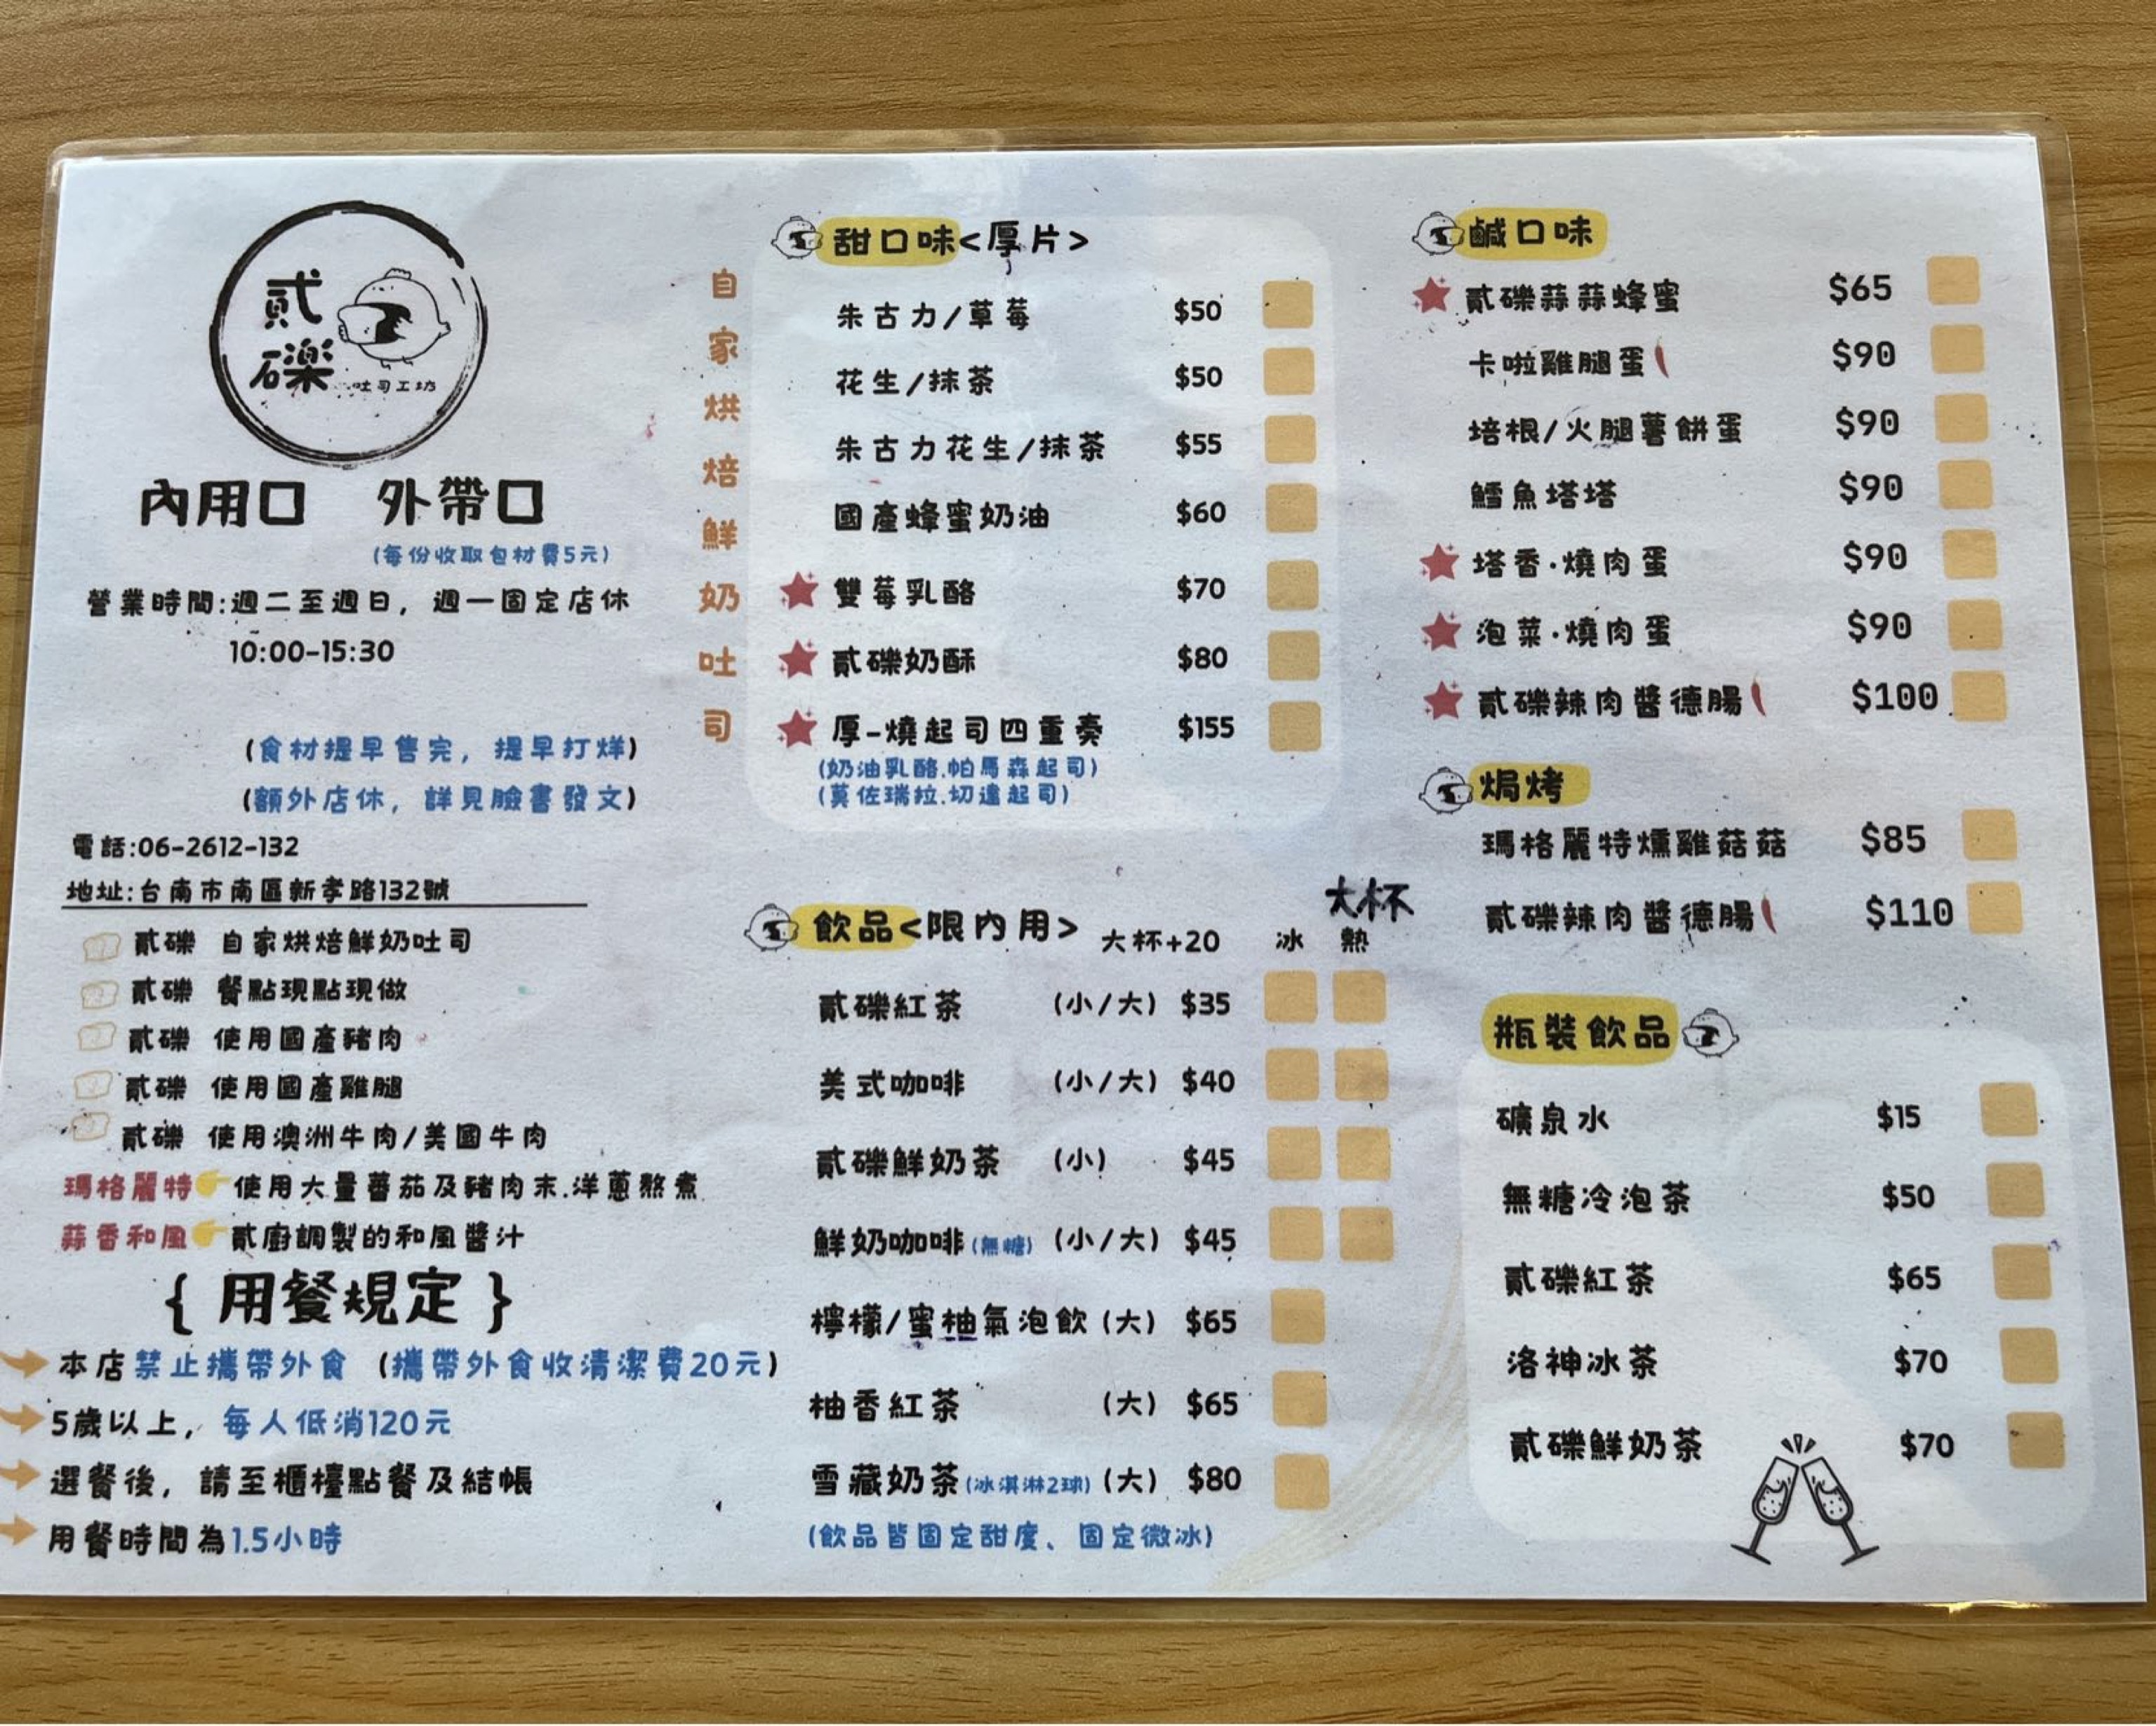 貳
礫
吐司工坊
內用口 外帶口
(每份收取包材費5元)
營業時間:週二至週日，週一固定店休
10:00-15:30
(食材提早售完，提早打烊)
(額外店休，詳見臉書發文)
電話:06-2612-132
地址:台南市南區新孝路132號
貳礫 自家烘焙鮮奶吐司
貳礫 餐點現點現做
貳礫 使用國產豬肉
貳礫 使用國產雞腿
貳礫 使用澳洲牛肉/美國牛肉
瑪格麗特👉使用大量蕃茄及豬肉末.洋蔥熬煮
蒜香和風👉貳廚調製的和風醬汁
{用餐規定}
本店禁止攜帶外食 (攜帶外食收清潔費20元)
5歲以上，每人低消120元
選餐後，請至櫃檯點餐及結帳
用餐時間為1.5小時
自家烘焙鮮奶吐司
甜口味<厚片>
朱古力/草莓 $50
花生/抹茶 $50
朱古力花生/抹茶 $55
國產蜂蜜奶油 $60
★雙莓乳酪 $70
★貳礫奶酥 $80
★厚-燒起司四重奏 $155
(奶油乳酪.帕馬森起司)
(莫佐瑞拉.切達起司)
飲品<限內用> 大杯+20 冰 熱
大杯
貳礫紅茶 (小/大) $35
美式咖啡 (小/大) $40
貳礫鮮奶茶 (小) $45
鮮奶咖啡(無糖) (小/大) $45
檸檬/蜜柚氣泡飲 (大) $65
柚香紅茶 (大) $65
雪藏奶茶(冰淇淋2球) (大) $80
(飲品皆固定甜度、固定微冰)
鹹口味
★貳礫蒜蒜蜂蜜 $65
卡啦雞腿蛋 $90
培根/火腿薯餅蛋 $90
鱈魚塔塔 $90
★塔香·燒肉蛋 $90
★泡菜·燒肉蛋 $90
★貳礫辣肉醬德腸 $100
焗烤
瑪格麗特燻雞菇菇 $85
貳礫辣肉醬德腸 $110
瓶裝飲品
礦泉水 $15
無糖冷泡茶 $50
貳礫紅茶 $65
洛神冰茶 $70
貳礫鮮奶茶 $70